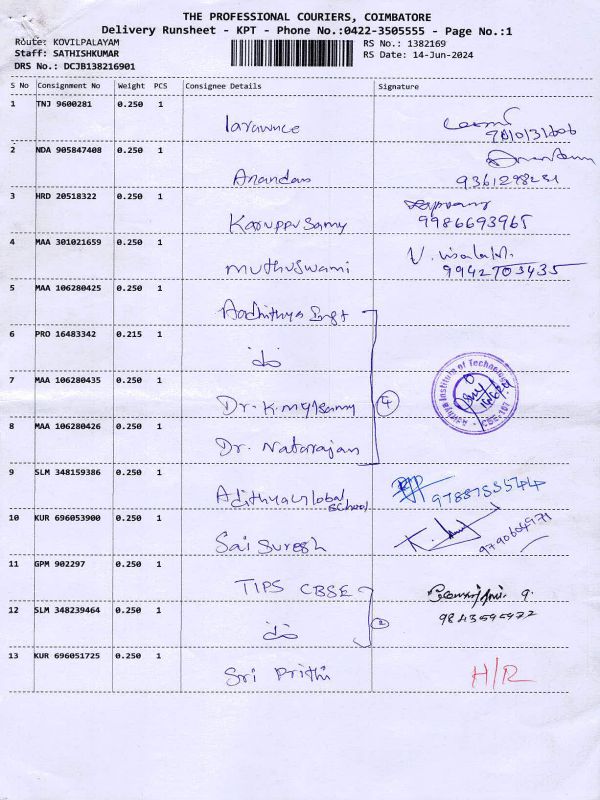 THE PROFESSIONAL COURIERS, COIMBATORE
Delivery Runsheet - KPT - Phone No.:0422-3505555 - Page No.:1
Route: KOVILPALAYAM RS No.: 1382169
Staff: SATHISHKUMAR RS Date: 14-Jun-2024
DRS No.: DCJB138216901
S No Consignment No Weight PCS Consignee Details Signature
1 TNJ 9600281 0.250 1 larawnce
2 NDA 905847408 0.250 1 Anandan 9361298251
3 HRD 20518322 0.250 1 Karuppusamy 9986693965
4 MAA 301021659 0.250 1 muthuswami 9942703435
5 MAA 106280425 0.250 1 Aadhithya Inst
6 PRO 16483342 0.215 1 do
7 MAA 106280435 0.250 1 Dr. K. mylsamy 4
8 MAA 106280426 0.250 1 Dr. Natarajan
Institute of Technology
CBE-107
9 SLM 348159386 0.250 1 Adithya Global School
10 KUR 696053900 0.250 1 Sai Suresh 9790604971
11 GPM 902297 0.250 1 TIPS CBSE
12 SLM 348239464 0.250 1 do 2 9843595922
13 KUR 696051725 0.250 1 Sri Prithi H/R